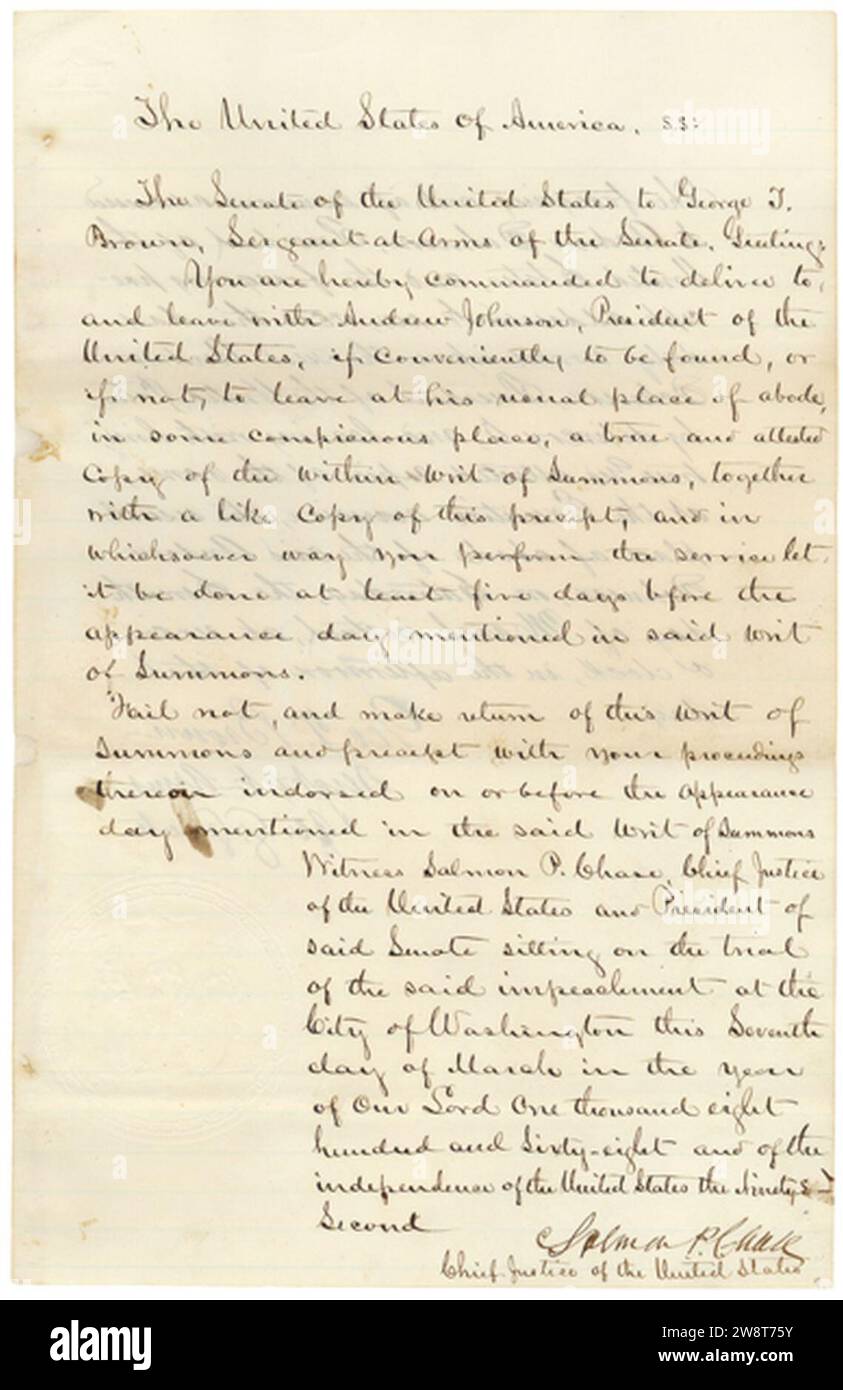 The United States of America. ss:
The Senate of the United States to George T.
Brown, Sergeant-at-Arms of the Senate, Greeting:
You are hereby commanded to deliver to,
and leave with Andrew Johnson, President of the
United States, if conveniently to be found, or
if not, to leave at his usual place of abode,
in some conspicuous place, a true and attested
Copy of the within writ of Summons, together
with a like Copy of this precept, and in
whichsoever way you perform the service let
it be done at least five days before the
appearance day mentioned in said writ
of Summons.
Fail not, and make return of this writ of
Summons and precept with your proceedings
thereon indorsed on or before the appearance
day mentioned in the said writ of Summons
Witness Salmon P. Chase, Chief Justice
of the United States and President of
said Senate sitting on the trial
of the said impeachment at the
City of Washington this Seventh
day of March in the year
of Our Lord One thousand eight
hundred and Sixty-eight and of the
independence of the United States the Ninety-
Second
Salmon P. Chase
Chief Justice of the United States
alamy
Image ID: 2W8T75Y
www.alamy.com